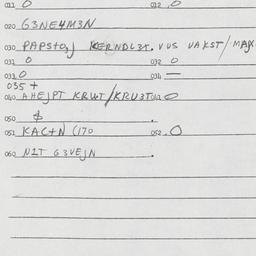 011 0 012 .0
020 G3NE4M3N
030 PAPSt0,J KERNDL3t. VUS UAKST/MAJX
031 0 032 0
033 0 034 —
035 +
040 AHEJPT KRUT/KRU3T 041 0
050 $ .
051 KACtN (170 052 .0
060 NIT G3VEJN .